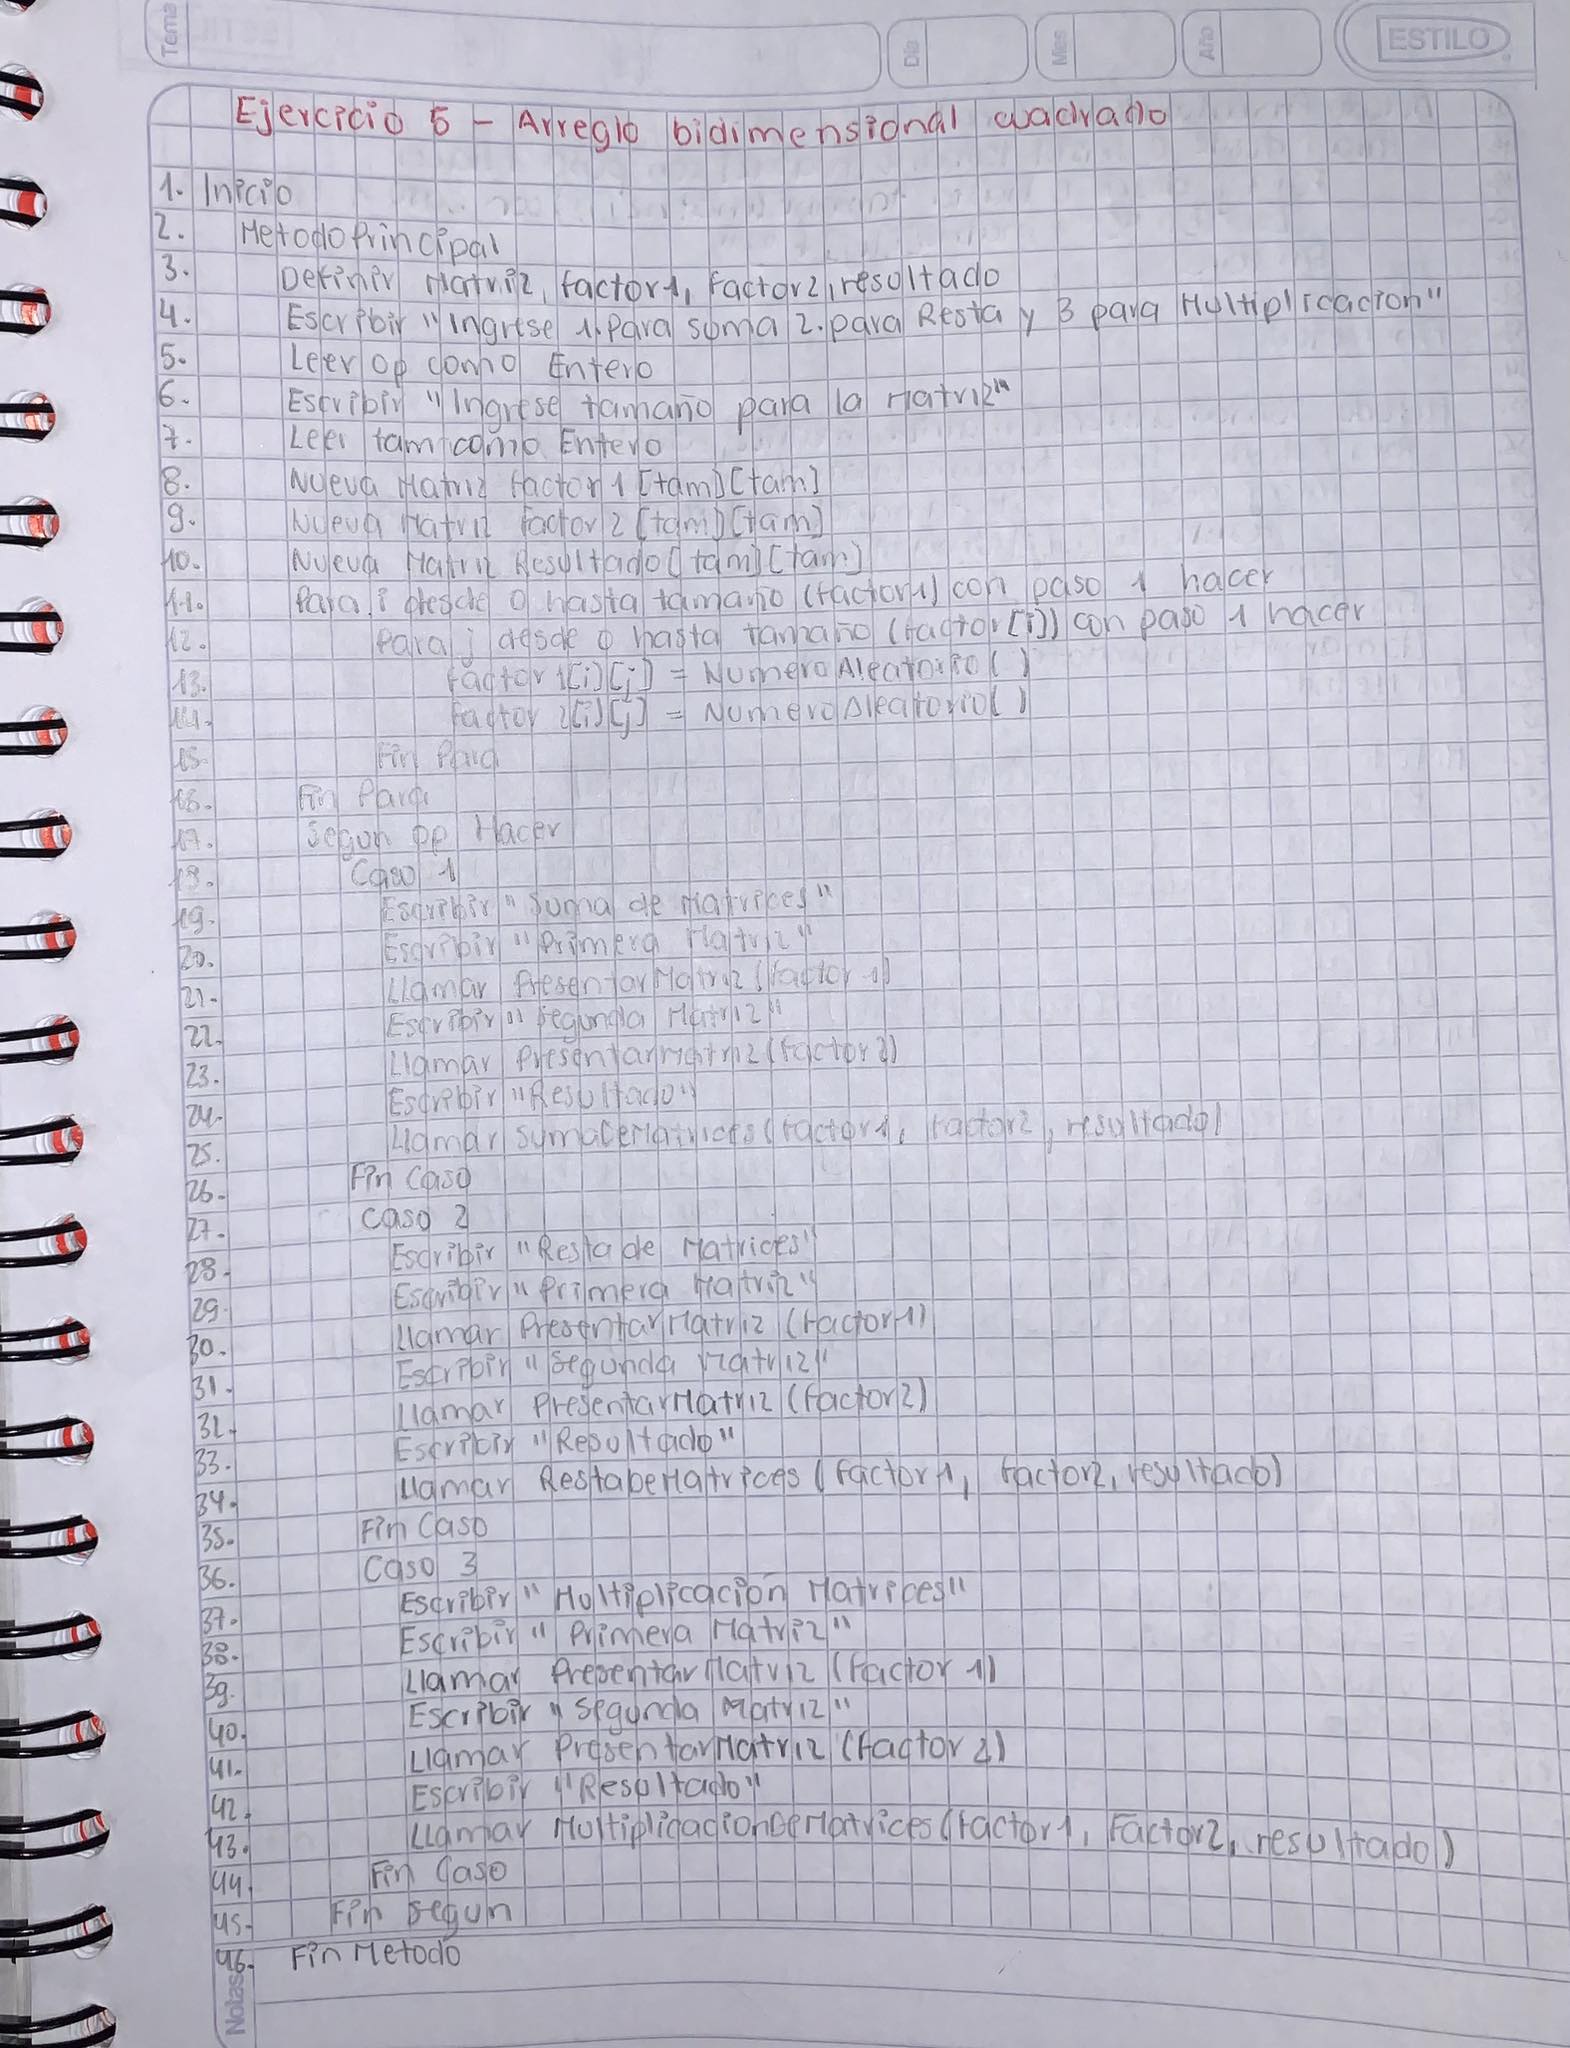 Tema
Dia
Mes
Año
ESTILO
Ejercicio 5 - Arreglo bidimensional cuadrado
1. Inicio
2. MetodoPrincipal
3. Definir Matriz, factor1, factor2, resultado
4. Escribir "Ingrese 1. Para suma 2. para Resta y 3 para Multiplicacion"
5. Leer op como Entero
6. Escribir "Ingrese tamaño para la Matriz"
7. Leer tam como Entero
8. Nueva Matriz factor 1 [tam][tam]
9. Nueva Matriz factor 2 [tam][tam]
10. Nueva Matriz Resultado[tam][tam]
11. Para i desde 0 hasta tamaño (factor1) con paso 1 hacer
12. Para j desde 0 hasta tamaño (factor[i]) con paso 1 hacer
13. factor 1[i][j] = NumeroAleatorio( )
14. factor 2[i][j] = NumeroAleatorio( )
15. Fin Para
16. Fin Para
17. Segun op Hacer
18. Caso 1
19. Escribir "Suma de Matrices"
20. Escribir "Primera Matriz"
21. Llamar PresentarMatriz (factor 1)
22. Escribir "Segunda Matriz"
23. Llamar PresentarMatriz (factor 2)
24. Escribir "Resultado"
25. Llamar SumaDeMatrices (factor1, factor2, resultado)
26. Fin Caso
27. Caso 2
28. Escribir "Resta de Matrices"
29. Escribir "Primera Matriz"
30. Llamar PresentarMatriz (factor1)
31. Escribir "Segunda Matriz"
32. Llamar PresentarMatriz (factor2)
33. Escribir "Resultado"
34. Llamar RestaDeMatrices (factor1, factor2, resultado)
35. Fin Caso
36. Caso 3
37. Escribir "Multiplicación Matrices"
38. Escribir "Primera Matriz"
39. Llamar PresentarMatriz (factor 1)
40. Escribir "Segunda Matriz"
41. Llamar PresentarMatriz (factor 2)
42. Escribir "Resultado"
43. Llamar MultiplicacionDeMatrices (factor1, Factor2, resultado)
44. Fin Caso
45. Fin Segun
46. Fin Metodo
Notas